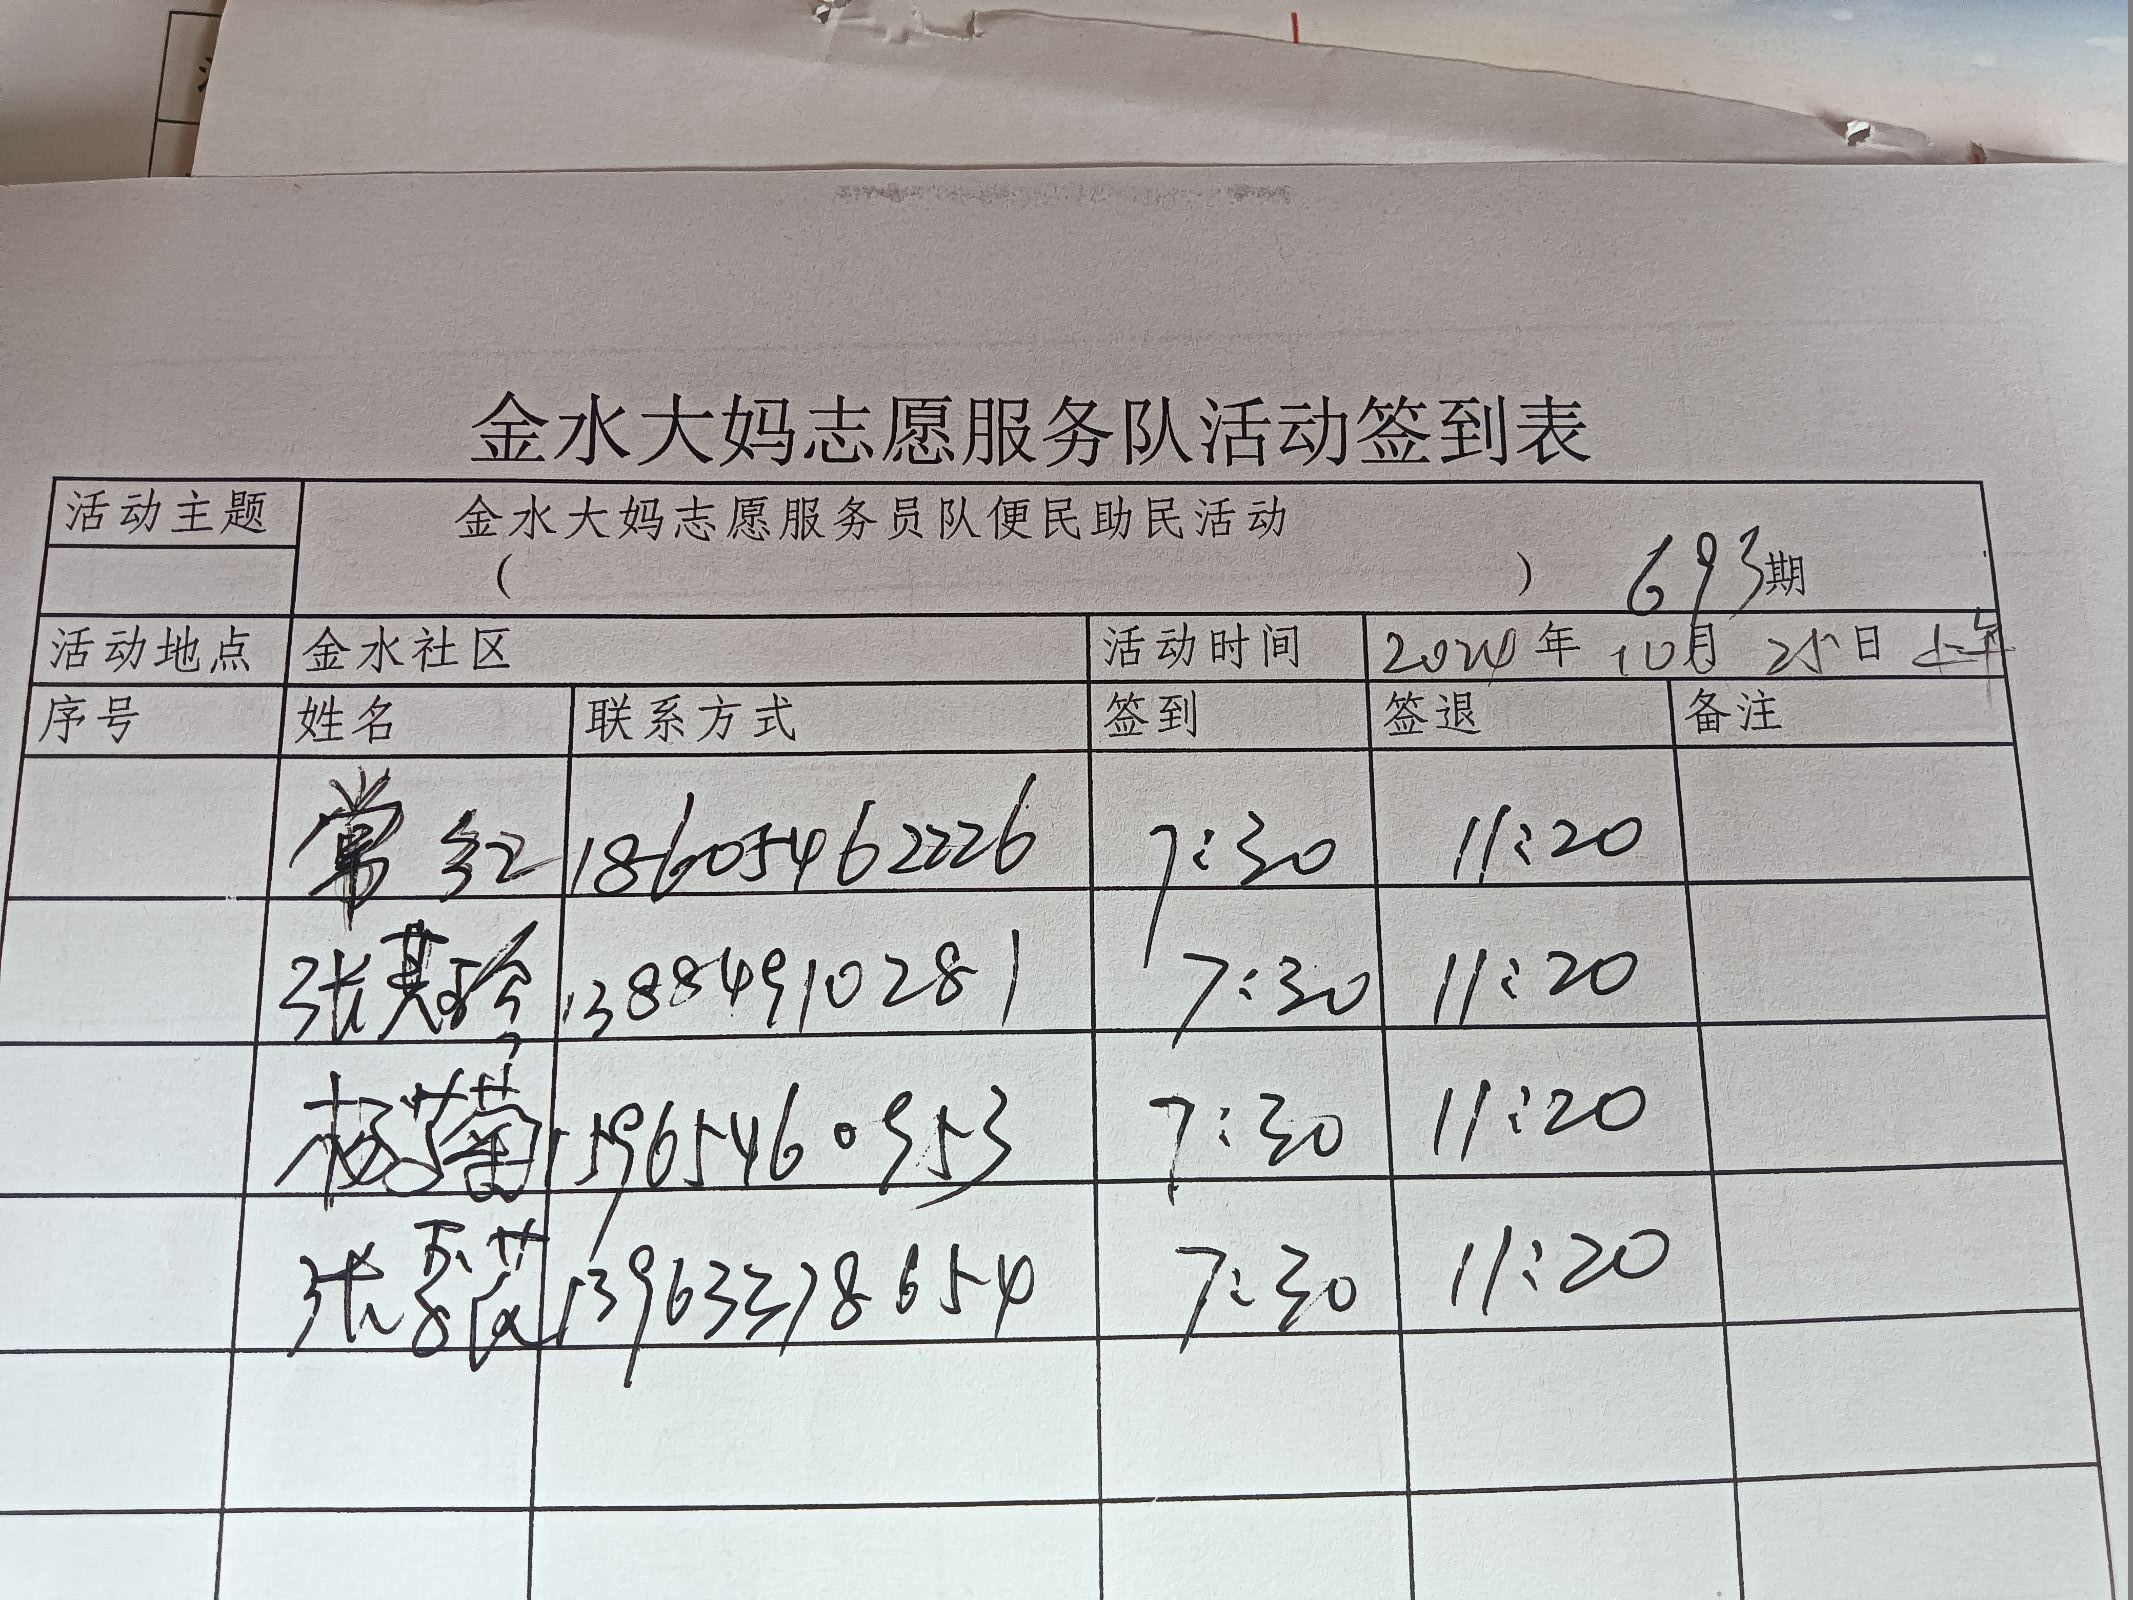 金水大妈志愿服务队活动签到表
活动主题 金水大妈志愿服务员队便民助民活动
( ) 693期
活动地点 金水社区 活动时间 2024年10月25日 上午
序号 姓名 联系方式 签到 签退 备注
常红 18605462226 7:30 11:20
张慕玲 13884910281 7:30 11:20
杨芳菊 15965460953 7:30 11:20
张 13963278654 7:30 11:20